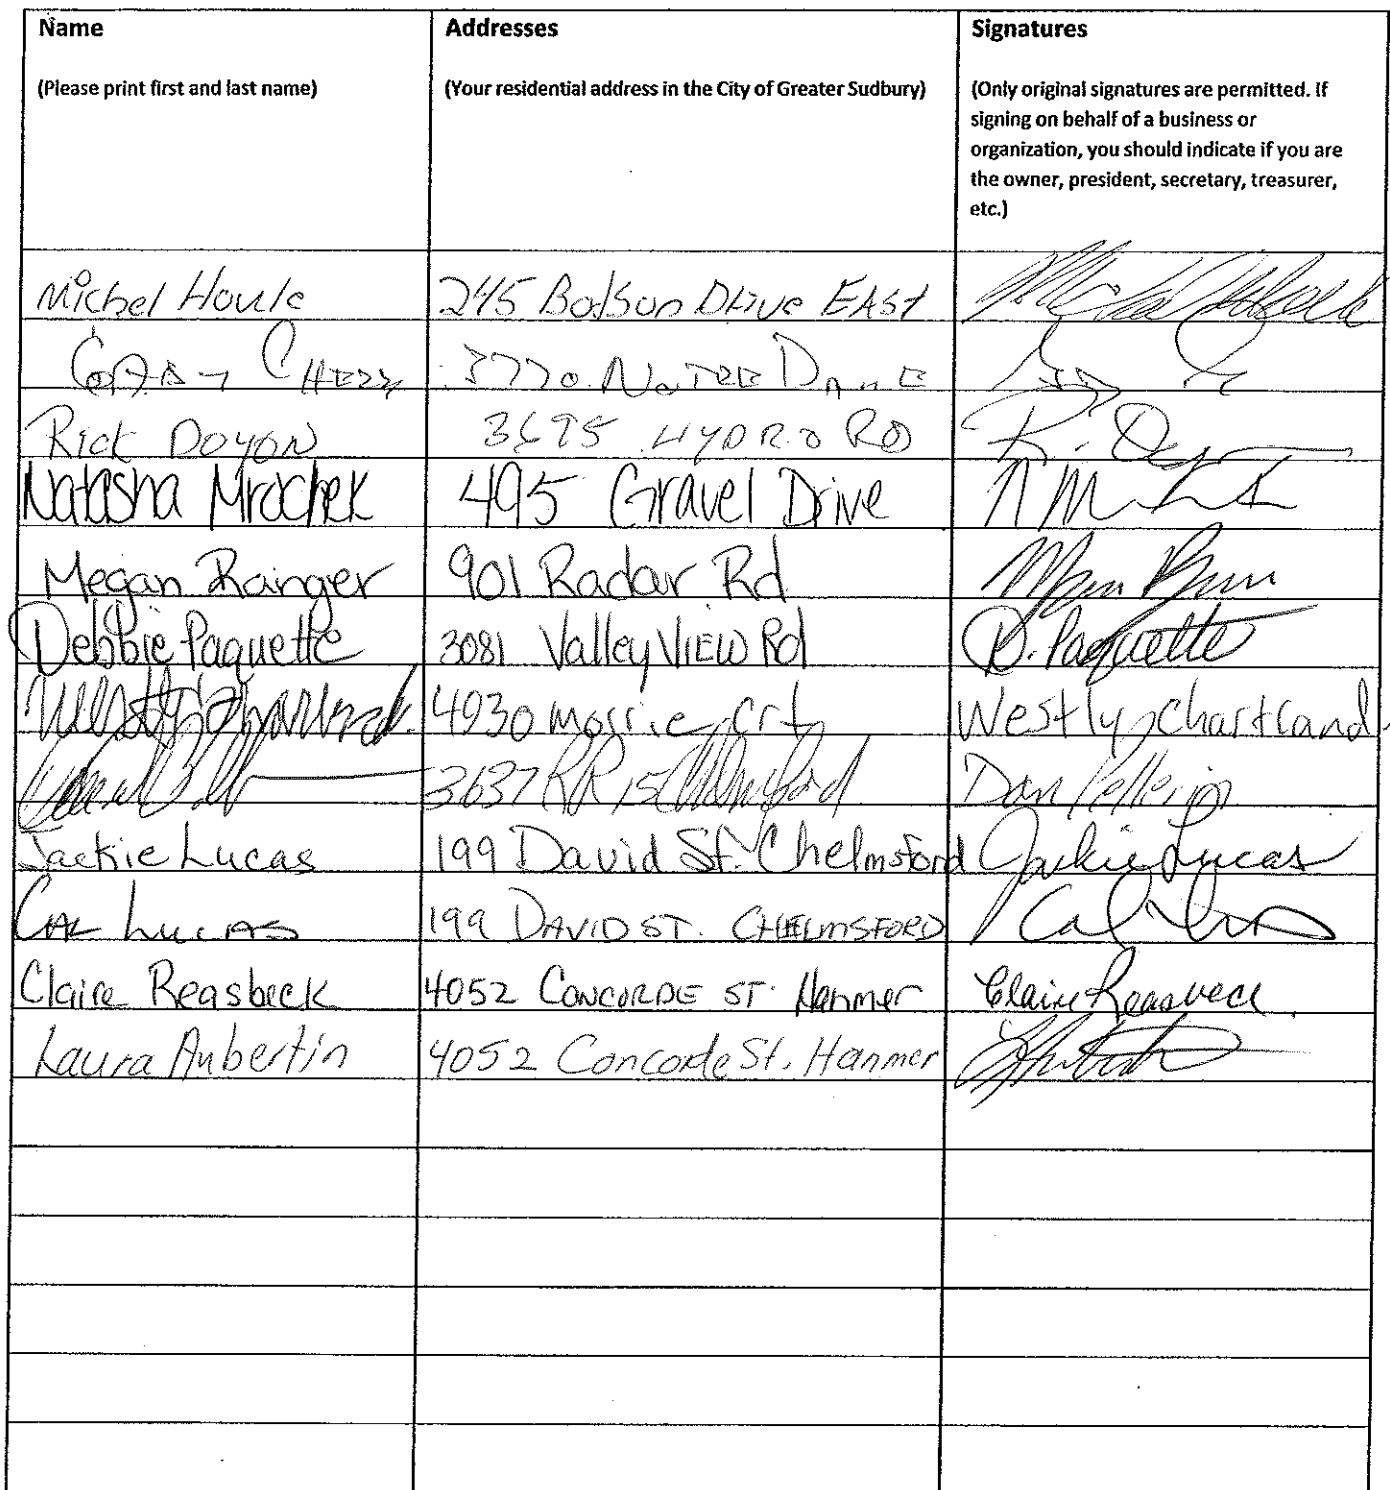 Name
(Please print first and last name)
Addresses
(Your residential address in the City of Greater Sudbury)
Signatures
(Only original signatures are permitted. If
signing on behalf of a business or
organization, you should indicate if you are
the owner, president, secretary, treasurer,
etc.)
Michel Houle 245 Bodson Drive EAST
3770 NOTRE DAME
RICK DOYON 3695 HYDRO RD R. Doyon
Natasha Mrochek 495 Gravel Drive
Megan Ranger 901 Radar Rd
Debbie Paquette 3081 Valley VIEW Rd D. Paquette
4930 crt Westly Chartrand
3637 RR 15 Chelmsford Dan Pellerin
Jackie Lucas 199 David St. Chelmsford Jackie Lucas
CAL LUCAS 199 DAVID ST. CHELMSFORD Cal
Claire Reasbeck 4052 CONCORDE ST. Hanmer Claire Reasbeck
Laura Aubertin 4052 Concorde St. Hanmer